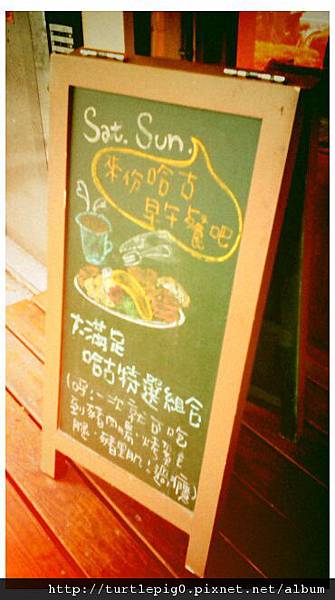 Sat. Sun.
來份哈古
早午餐吧
大滿足
哈古特選組合
(呼~一次就可吃
到豬肉腸、烤雞
腿、豬里肌，過癮)
http://turtlepig0.pixnet.net/album